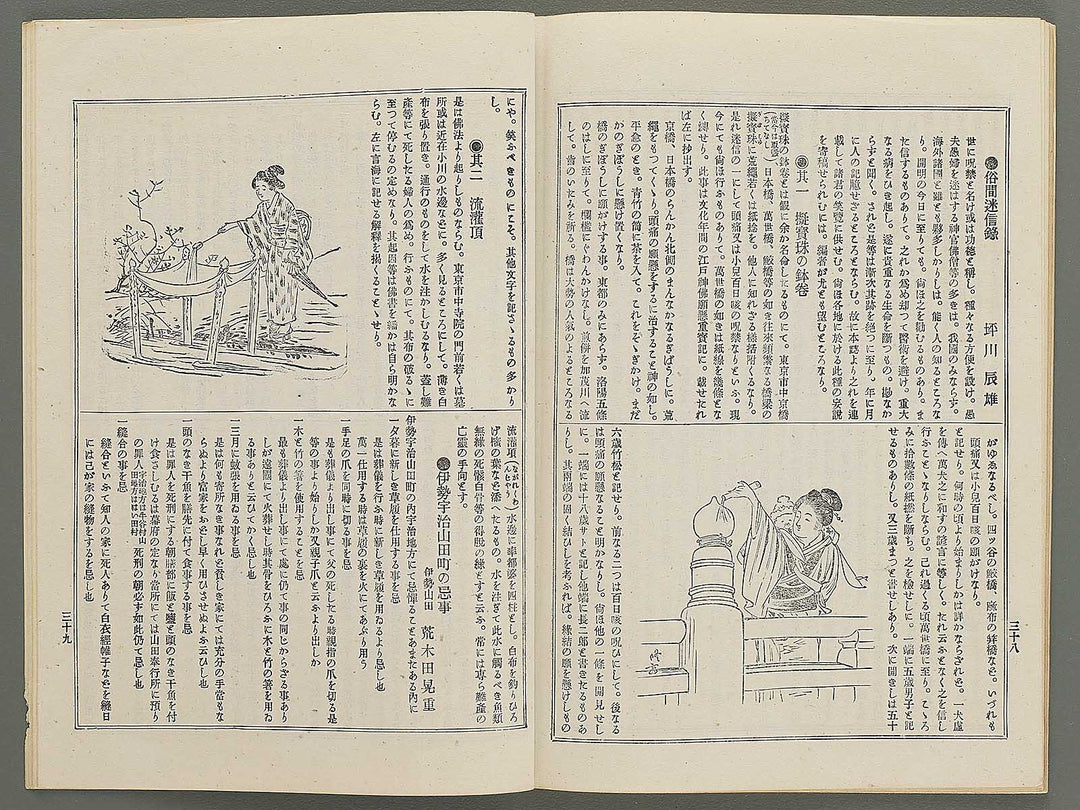 ●俗間迷信錄
坪川辰雄
世に呪禁と名け或は功德と稱し。種々なる方便を設け。愚
夫愚婦を迷はする神官佛僧等の多きは。我國のみならす。
海外諸國と雖とも夥多しかりしは。能く人の知るところな
り。開明の今日に至りても。尙ほ之を勸むるものあり。ま
た信するものありて。之れか爲め却つて醫術を避け。重大
なる病をひき起し。遂に貴重なる生命を斷つもの。尠なか
らすと聞く。されど是等は漸次其跡を絕つに至り。年に月
に人の記臆せさるところとならむ。故に本誌上より之れを連
載して諸君の笑覽に供せむ。尙ほ各地に於ける此種の妄說
を寄稿せられむには。編者が尤とも望むところなり。
●其一　擬寶珠の鉢卷
擬寶珠の鉢卷とは假に余か名命したるものにて。東京市中京橋
日本橋、萬世橋、鮫橋等の如き往來頻繁なる橋梁の
擬寶珠に荒繩若くは紙捻を。他人に知れさる樣括附くるなり。
是れ迷信の一にして頭痛又は小兒百日咳の呪禁なりといふ。現
今にても尙ほ行ふものありて。萬世橋の如きは紙線を幾條とな
く縛せり。此事は文化年間の江戶神佛願懸重寶記に。載せたれ
ば左に抄出す。
京橋、日本橋のらんかん北側のまんなかなるぎぼうしに。荒
繩をもつてくゝり。頭痛の願懸をするに治すること神の如し。
平愈のとき。靑竹の筒に茶を入て。これをそゝぎかけ。また
かのぎぼうしに懸け置くなり。
橋のぎぼうしに願がけする事。東都のみにあらす。洛陽五條
のはしに至りて。欄檻にぐわんかけなし。煎餠を加茂川へ流
して。齒のいたみを祈る。橋は大勢の人氣のよるところなる
がゆゑなるべし。四ッ谷の鮫橋、麻布の笄橋など。いづれも
頭痛又は小兒百日咳の願がけなり。
と記せり。何時の頃より始まりしかは詳かならされど。一犬虛
を傳へ萬犬之に和すの諺言に等しく。たれ云ふとなく之を信し
行ふことゝなりしならむ。己れ過くる頃萬世橋に至り。こゝろ
みに拾數條の紙撚を斷ち。之を檢せしに。一端に五歲男子と記
せるものあり。又三歲まつと書せしあり。次に開きしは五十
六歲竹松と記せり。前なる二つは百日咳の呪ひにして。後なる
は頭痛の願懸なること明かなりし。尙ほ他の一條を開見せし
に。一端には十八歲サトと記し他端に長二郎と書きたるものあ
りし。其兩端の固く結ひしを考ふれば。緣結の願を懸けしもの
三十八
にや。笑ふべきものにこそ。其他文字を記さゝるもの多かり
し。
●其二　流灌頂
是は佛法より起りしものならむ。東京市中寺院の門前若くは墓
所或は近在小川の水邊などに。多く見るところにして。薄き白
布を張り置き。通行のものをして水を注かしむるなり。蓋し難
產等にて死したる婦人の爲め。行ふものにて。其布の破るゝに
至つて停むるの定めなり。其起因等は佛書を繙かは自ら明かな
らむ。左に言海に記せる解釋を揭くることゝせり。
流灌頂（ながれくわんちやう）水邊に卒都婆を四柱とし。白布を釣りひろ
げ樒の葉など添へたるもの。水を注ぎて此水に觸るべき魚類
無緣の死骸白骨等の得脫の緣とすと云ふ。常には專ら難產の
亡靈の手向とす。
●伊勢宇治山田町の忌事
伊勢山田　荒木田晃重
伊勢宇治山田町の內宇治地方にて忌憚ることあまたある內に
一夕暮に新しき草履を仕用する事を忌
是は葬儀を行ふ時に新しき草履を用ゐるより忌し也
萬一仕用する時は草履の裏を火にてあぶり用う
一手足の爪を同時に切る事を忌
是も葬儀より出し事にて父の死したる時親指の爪を切る是
等の事より始りしか又親子爪と云ふより出しか
一木と竹の箸を使用することを忌
最も葬儀より出し事にて處に仍て事の同じからさる事あり
しが遠國にて火葬せし時其骨をひろふに木と竹の箸を用ゐ
る事ありと云ひてかく忌し也
一三月に蚊張を用ゐる事を忌
是は何も寄所なき事なれど貧しき家にては充分の手當もな
らぬより富家をおどし早く用ひさせぬよふ云ひし也
一頭のなき干魚を膳先に付て食事する事を忌
是は罪人を死刑にする朝膳部に飯と鹽と頭のなき干魚を付
け食さしむるは幕府の定なり當所にては山田奉行所に預り
の罪人 死刑の朝必ず如此仍て忌し也
一縫合の事を忌
縫合といふて知人の家に死人ありて白衣經帷子などを縫日
には己が家の縫物をするを忌し也
三十九